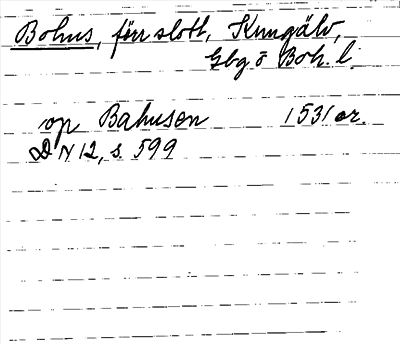 Bohus, förr slott, Kungälv,
Gbg ö Boh. l.
op Bahusen 1531 or.
DN 12, s. 599